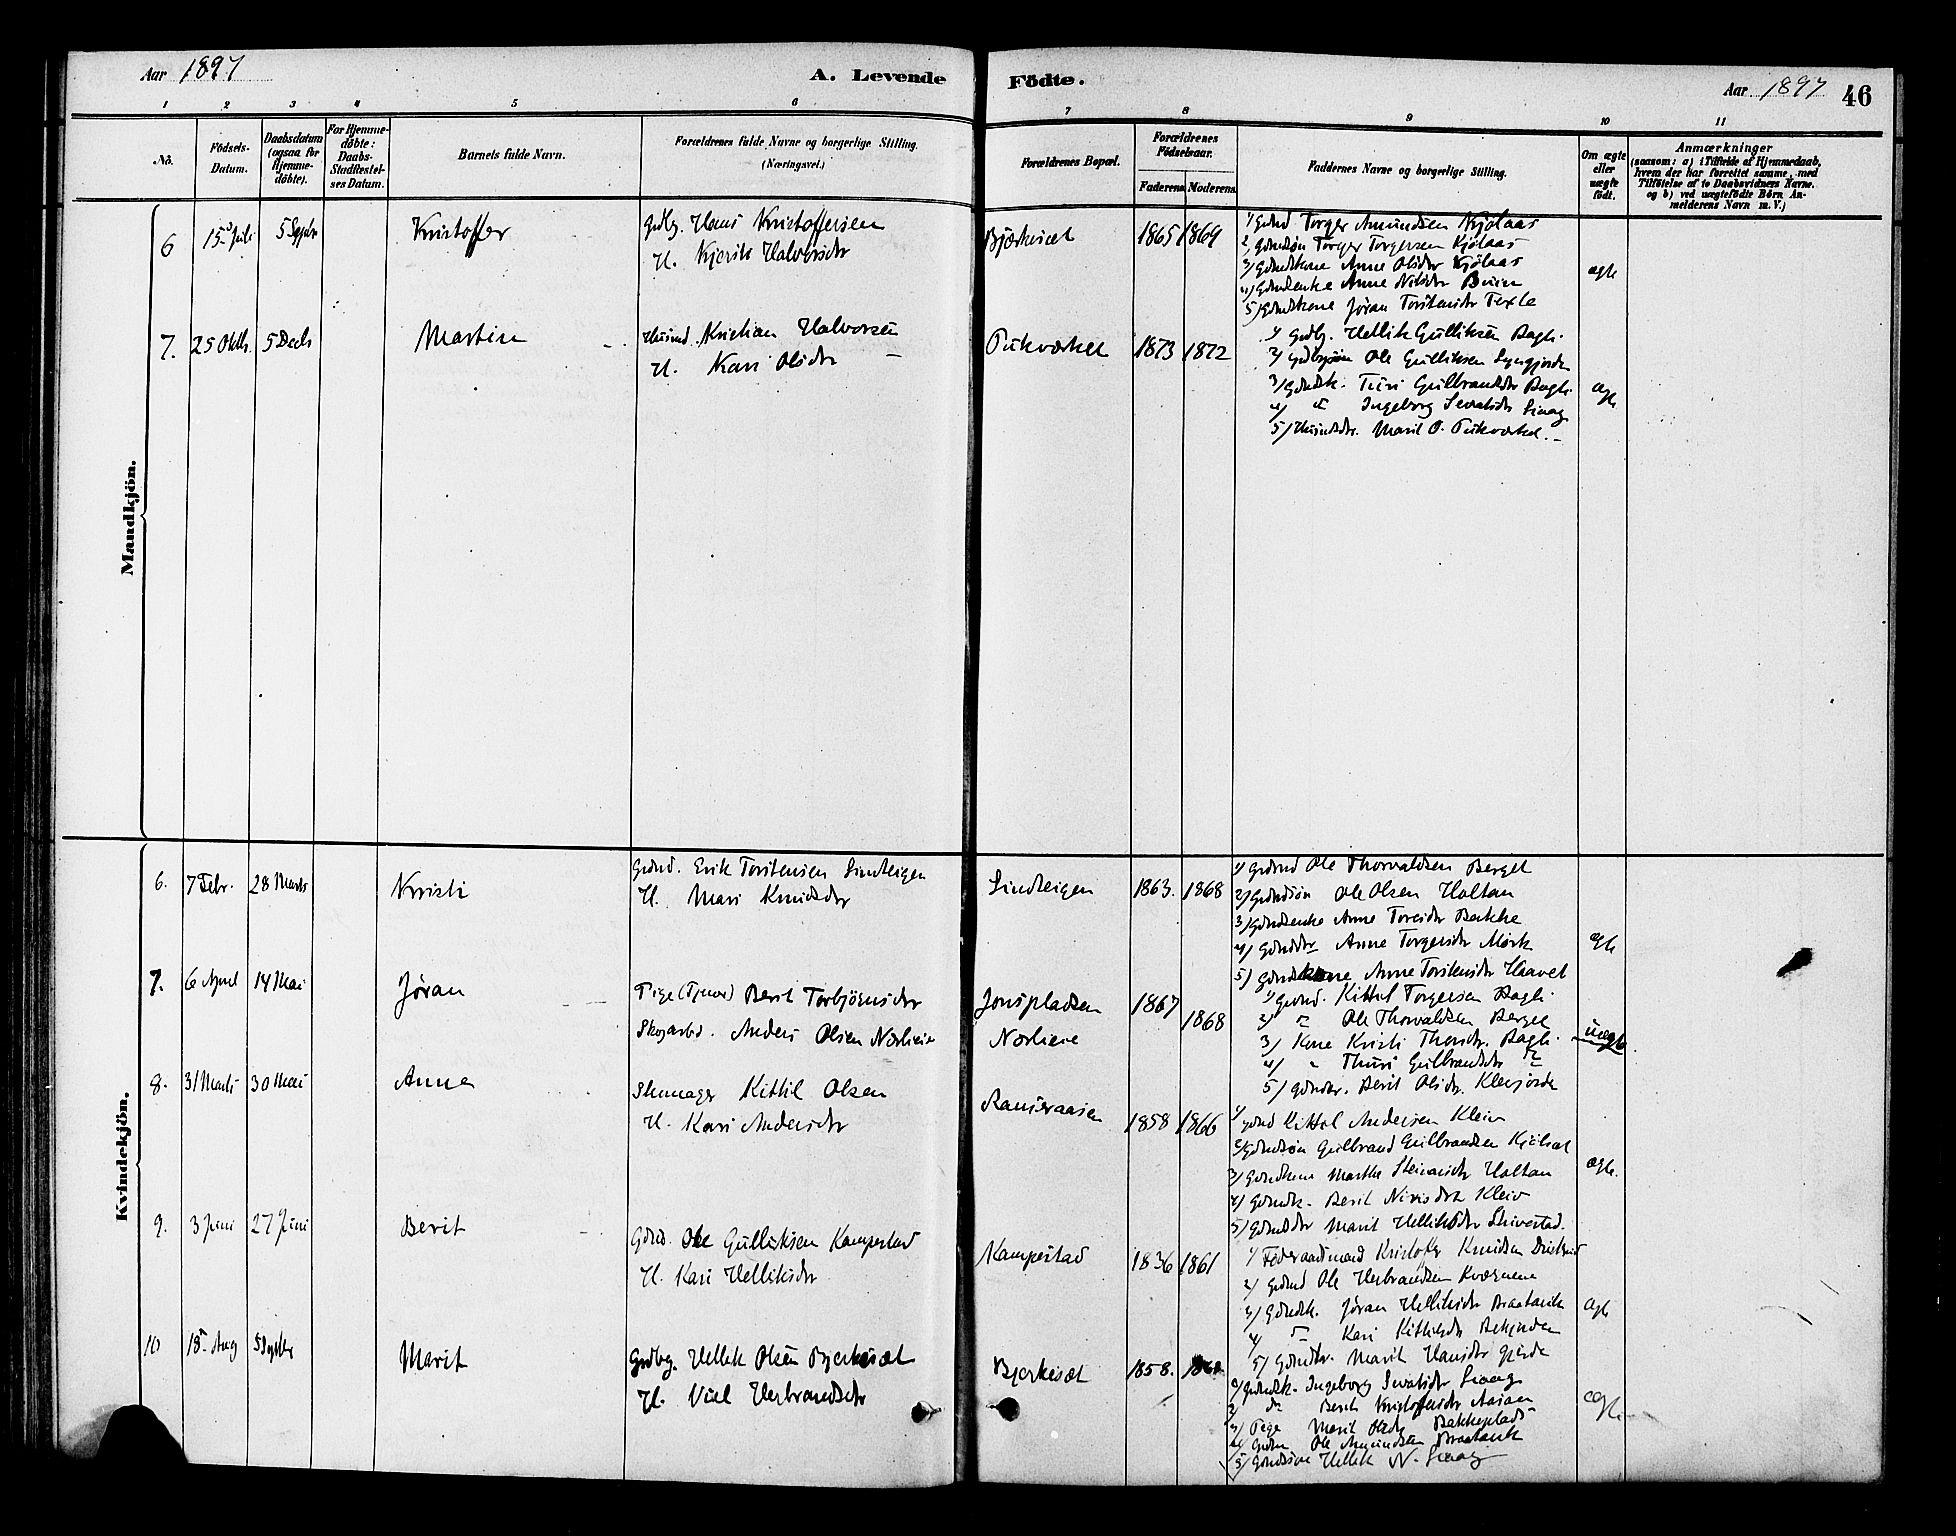 Aar 1897
A. Levende
Födte.
Aar 1897
46
1 2 3 4 5 6 7 8 9 10 11
No.
Födsels-
Datum.
Daabsdatum
(ogsaa for
Hjemme-
döbte).
For Hjemme-
döbte:
Daabs-
Stadfæstel-
ses Datum.
Barnets fulde Navn.
Forældrenes fulde Navne og borgerlige Stilling.
(Næringsvei.)
Forældrenes Bopæl.
Forældrenes
Födselsaar.
Faderens Moderens
Faddernes Navne og borgerlige Stilling.
Om ægte
eller
uægte
födt.
Anmærkninger
(saasom: a) i Tilfælde af Hjemmedaab,
hvem der har forrettet samme, med
Tilföielse af to Daabsvidners Navne.
og b) ved uægtefödte Börn An-
melderens Navn m. V.)
Mandkjön.
6 15 Juli 5 Septbr Kristoffer Grdbg. Hans Kristoffersen
H. Kjersti Halvorsdtr
Bjørkeset 1865 1869
1) Grdmd Torger Amundsen Kjølaas
2) Grdmdsøn Torger Torgersen Kjølaas
3) Grdmdkone Anne Olsdtr Kjølaas
4) Grdmdenke Anne Nilsdtr
5) Grdmdkone Jøran Torstensdtr
ægte
7. 25 Oktb. 5 Decb Martin Husmd. Kristian Halvorsen
H. Kari Olsdtr
Pukværket 1873 1872
1) Grdbg. Hellik Gulliksen Bagli
2) Ole Gulliksen
3) Grdmdk. Turi Gulbrandsdtr Bagli
4) Ingeborg
5) Husmdsdtr. Marit O. Pukværket.
ægte
Kvindekjön.
6. 7 Febr. 28 Marts Kristi Grdmd. Erik Torstensen Lindteigen
H. Mari Knudsdtr
Lindteigen 1863. 1868
1) Grdmd Ole Thorvaldsen Berget
2) Grdmdsøn Ole Olsen Haltan
3) Grdmdenke Anne Toresdtr Bakke
4) Grdmddtr Anne Torgersdtr Mørk
5) Grdmdkone Anne Torstensdtr
ægte
7. 6 April 14 Mai Jøran Pige (Tjener) Berit Torbjørnsdtr
Skogarbd. Anders Olsen Nørlieie
Jonspladsen
Nørlieie
1867 1868
1) Grdmd. Kittil Torgersen Bagli
2) Ole Thorvaldsen Berget
3) Kone Kristi Thorsdtr. Bagli
4) Thuri Gulbrandsdtr
5) Grdmddtr. Berit Olsdtr.
uægte
8. 31 Marts 30 Mai Anne Skomager Kittil Olsen
H. Kari Andersdtr
1858 1866
1) Grdmd Kittil Andersen Kleiv
2) Grdmdsøn Gulbrand Gulbrandsen
3) Grdmdkone Marthe Haltan
4) Grdmdk. Berit Kleiv
5) Grdmddtr Marit Helliksdtr
ægte.
9. 3 Juni 27 Juni Berit Grdmd. Ole Gulliksen Kampestad
H. Kari Helliksdtr
Kampestad 1836 1861
1) Föderaadsmand Kristoffer Knudsen
2) Grdmd Ole Herbrandsen Kværnene
3) Grdmdk. Jøran Helliksdtr
4) Kari Kittilsdtr
5) Grdmddtr. Marit Hansdtr
ægte
10 18 Aug 5 Septbr Marit Grdbg. Hellik Olsen Bjerkeset
H. Herbrandsdtr
Bjerkeset 1858.
1) Grdmdk. Ingeborg
2) Berit Kristoffersdtr Aasan
3) Pige Marit Olsdtr Bakkeplads
4) Grdm Ole Amundsen
5) Grdmdsøn Hellik N.
ægte